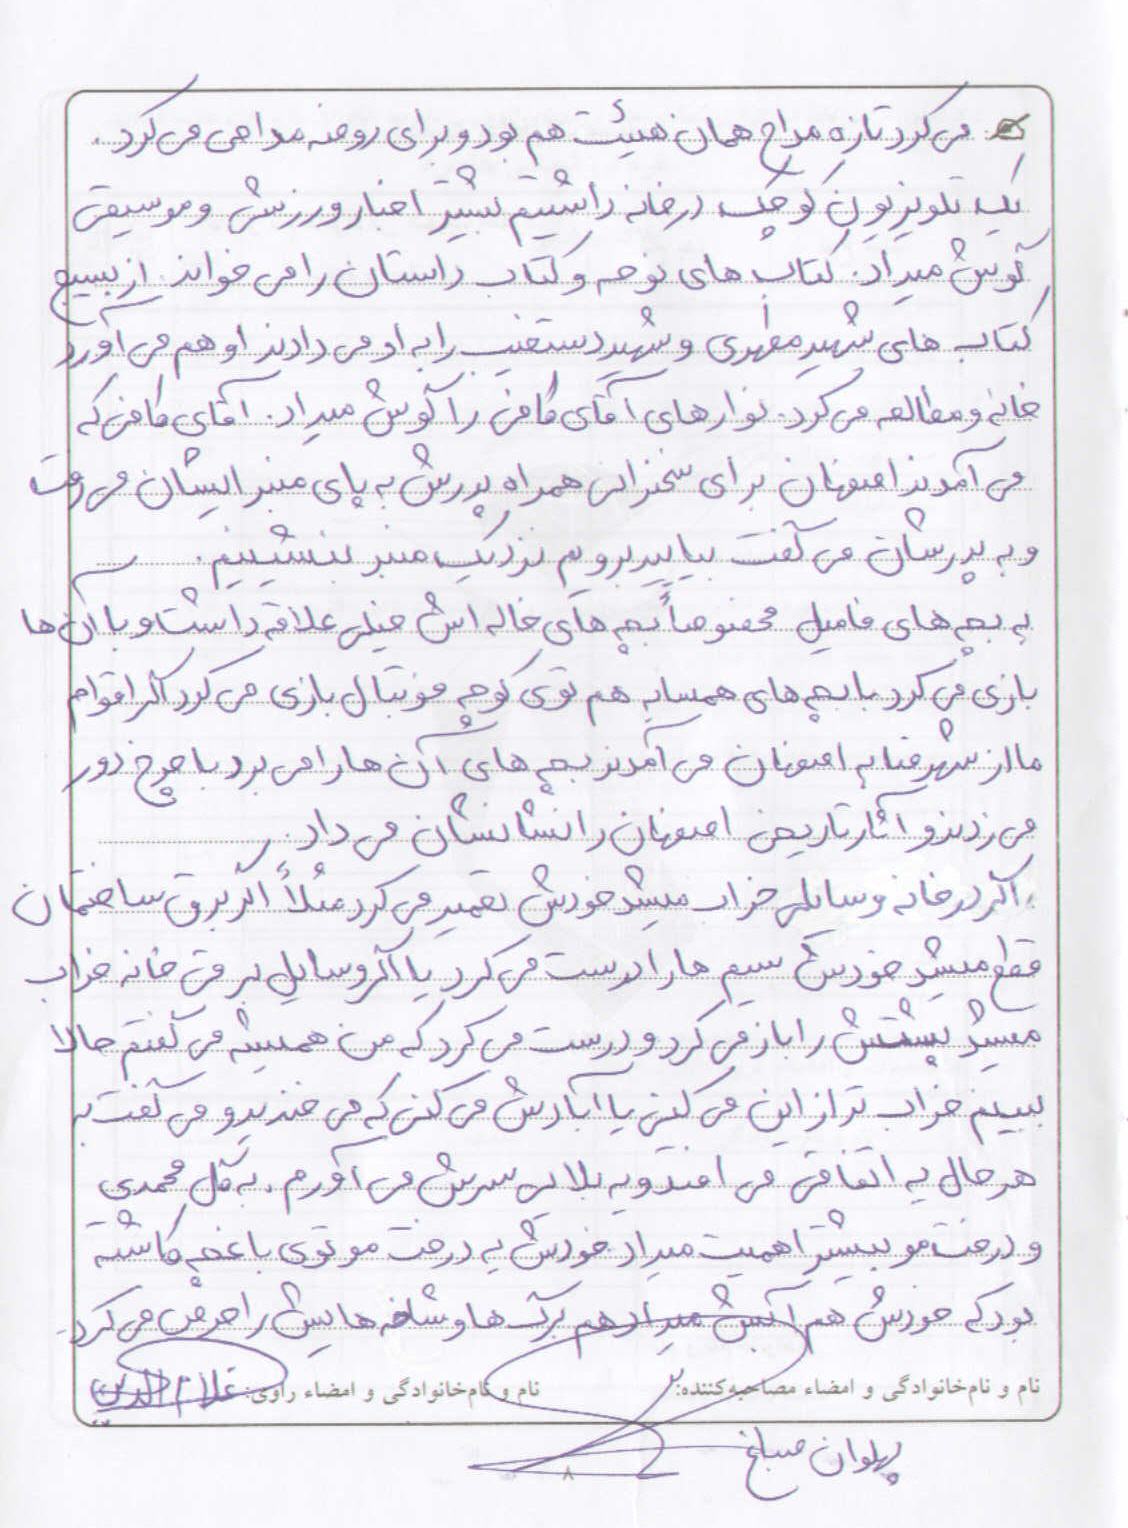 می کرد تازه مداح همان هیئت هم بود و برای روضه مداحی می کرد.
یک تلویزیون کوچک در خانه داشتیم بیشتر اخبار ورزشی و موسیقی
گوش میداد. کتاب های نوحه و کتاب داستان را می خواند. از بسیج
کتاب های شهید مطهری و شهید دستغیب را به او می دادند او هم می آورد
خانه و مطالعه می کرد. نوارهای آقای کافی را گوش میداد. آقای کافی که
می آمدند اصفهان برای سخنرانی همراه پدرش به پای منبر ایشان می رفت
و به پدرشان می گفت بیایید برویم نزدیک منبر بنشینیم.
به بچه های فامیل مخصوصاً بچه های خاله اش خیلی علاقه داشت و با آن ها
بازی می کرد با بچه های همسایه هم توی کوچه فوتبال بازی می کرد اگر اقوام
ما از شهرضا به اصفهان می آمدند بچه های آن ها را می برد با چرخ دور
می زدند و آثار تاریخی اصفهان را نشانشان می داد.
اگر در خانه وسائلی خراب میشد خودش تعمیر می کرد مثلاً اگر برق ساختمان
قطع میشد خودش سیم ها را درست می کرد یا اگر وسایل برقی خانه خراب
میشد پشتش را باز می کرد و درست می کرد که من همیشه می گفتم حالا
ببینم خراب تر از این می کنی یا آبادش می کنی که می خندید و می گفت به
هر حال یه اتفاقی می افتد و یه بلایی سرش می آورم. به گل محمدی
و درخت مو بیشتر اهمیت میداد خودش یه درخت مو توی باغچه کاشته
بود که خودش هم آبش میداد هم برگ ها و شاخه هایش را هرس می کرد.
نام و نام خانوادگی و امضاء مصاحبه کننده: نام و نام خانوادگی و امضاء راوی:
پهلوان
۸